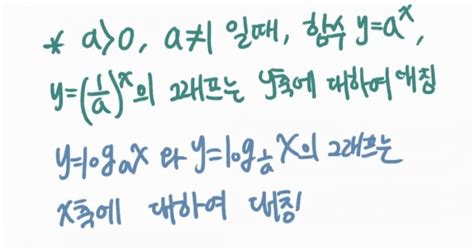 * a>0, a≠1 일때, 함수 y=aˣ,
y=(1/a)ˣ의 그래프는 y축에 대하여 대칭
y=logₐx 와 y=log_{1/a} x의 그래프는
x축에 대하여 대칭